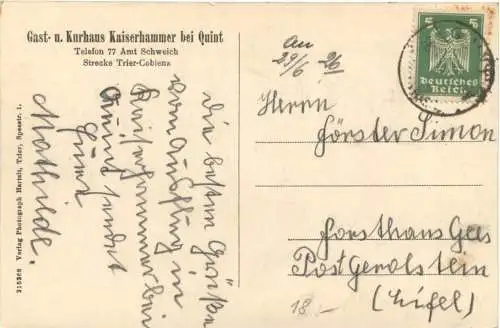 Gast- u. Kurhaus Kaiserhammer bei Quint
Telefon 77 Amt Schweich
Strecke Trier-Coblenz
An
29/6 26
5 5
Deutsches
Reich
Herrn
Förster Simon
Forsthaus Gees
Post Gerolstein
(Eifel)
18.-
Die besten Grüße
vom Ausflug in
Kaiserhammer bei
Quint sendet
Mathilde.
215268 Verlag Photograph Hartelt, Trier, Speestr. 1.